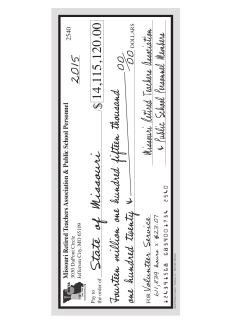 Missouri Retired Teachers Association & Public School Personnel
3030 DuPont Circle
Jefferson City, MO 65109
2540
2015
Pay to
the order of State of Missouri $ 14,115,120.00
Fourteen million one hundred fifteen thousand
one hundred twenty & 00/00 DOLLARS
FOR Volunteer Service
611,839 hours $23.07
Missouri Retired Teachers Association
& Public School Personnel Members
2540